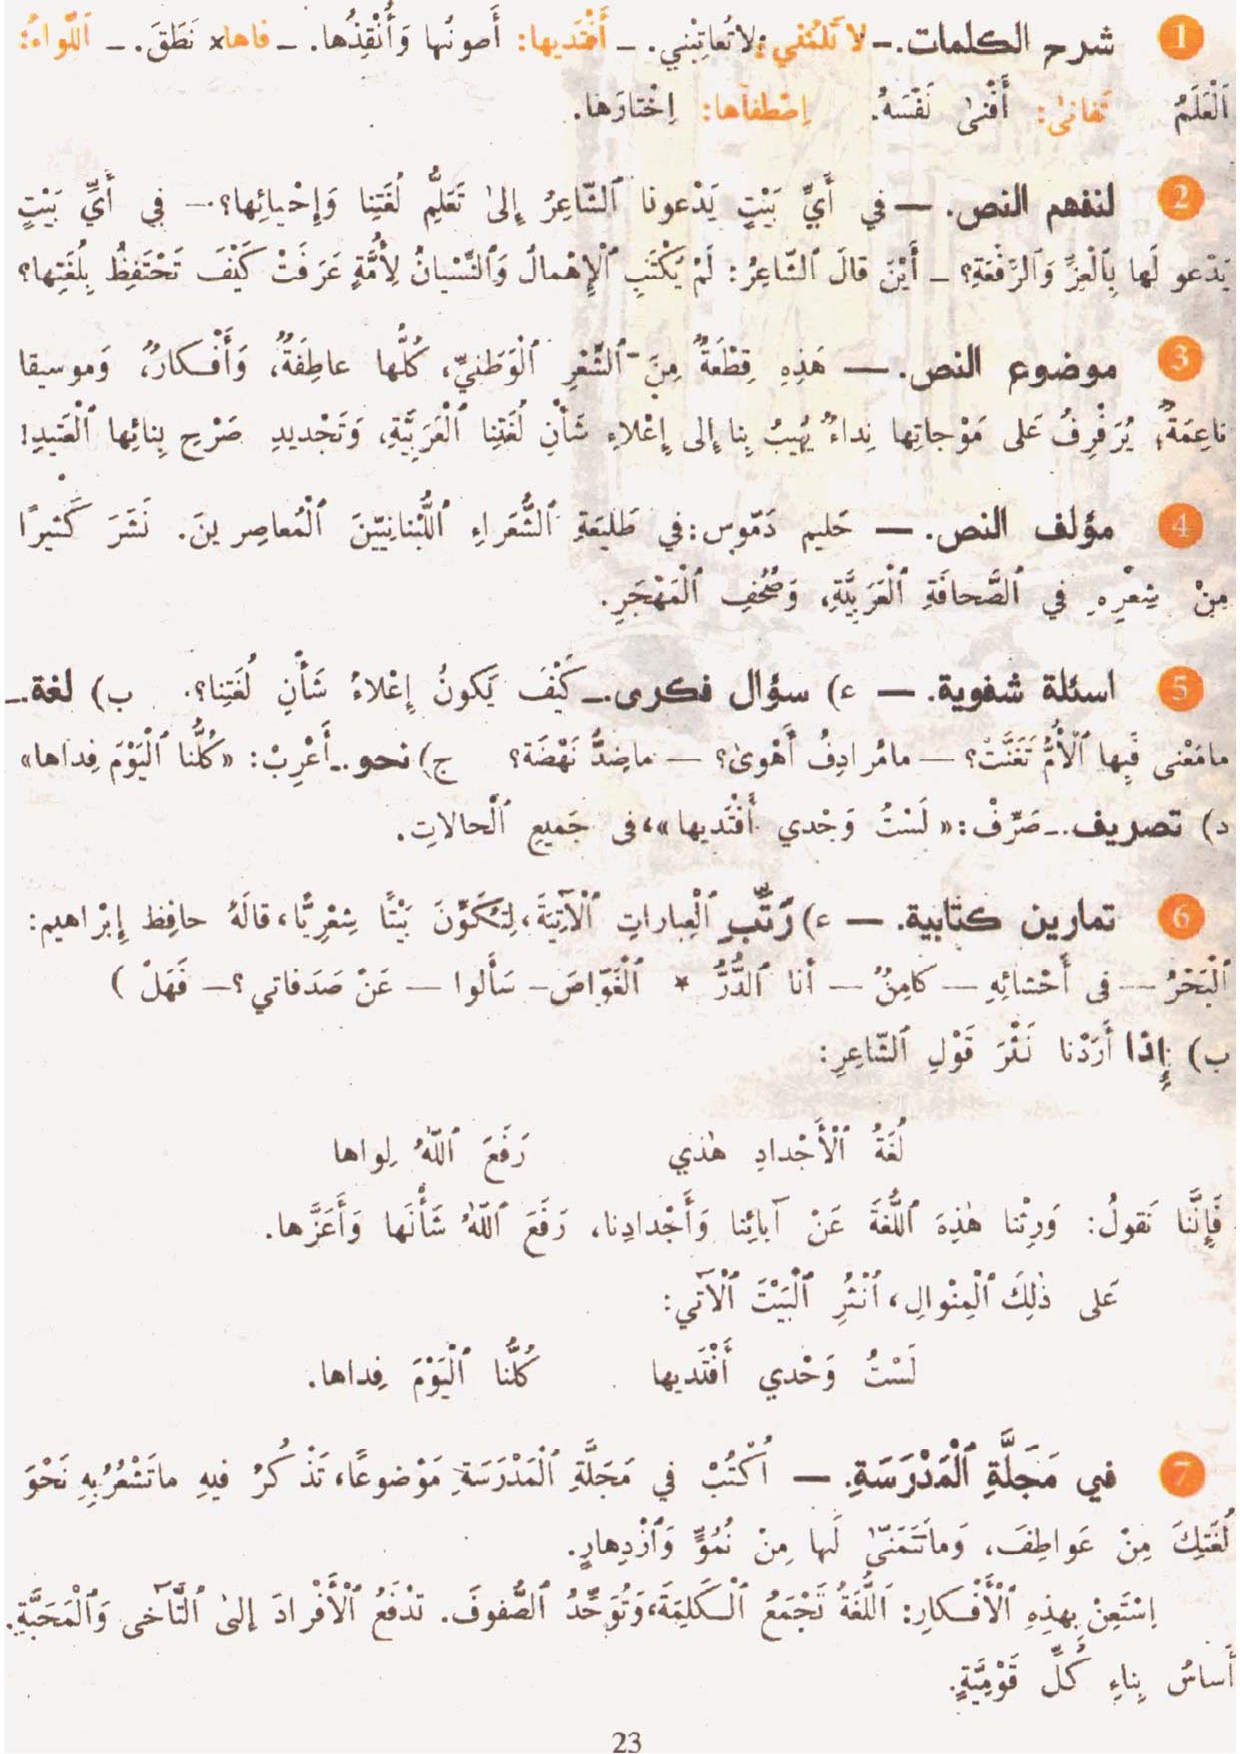 1 شرح الكلمات. - لا تَلُمْني: لاتُعاتِبْني. - أَفْتَديها: أَصونُها وَأُنْقِذُها. - فاها× نَطَقَ. - اَللِّواءُ:
اَلْعَلَمُ تَفانىٰ: أَفْنىٰ نَفْسَهُ. اِصْطَفاها: اِخْتارَها.
2 لنفهم النص. — في أَيِّ بَيْتٍ يَدْعونا ٱلشّاعِرُ إِلىٰ تَعَلُّمِ لُغَتِنا وَإِحْيائِها؟ — في أَيِّ بَيْتٍ
يَدْعو لَها بِٱلْعِزِّ وَٱلرِّفْعَةِ؟ - أَيْنَ قالَ ٱلشّاعِرُ: لَمْ يُكْتَبِ ٱلْإِهْمالُ وَٱلنِّسْيانُ لِأُمَّةٍ عَرَفَتْ كَيْفَ تَحْتَفِظُ بِلُغَتِها؟
3 موضوع النص. — هَذِهِ قِطْعَةٌ مِنَ ٱلشِّعْرِ ٱلْوَطَنِيِّ، كُلُّها عاطِفَةٌ، وَأَفْكارٌ، وَموسيقا
ناعِمَةٌ؛ يُرَفْرِفُ عَلى مَوْجاتِها نِداءٌ يُهيبُ بِنا إِلى إِعْلاءِ شَأْنِ لُغَتِنا ٱلْعَرَبِيَّةِ، وَتَجْديدِ صَرْحِ بِنائِها ٱلْعَتيدِ!
4 مؤلف النص. — حَليم دَمّوس: في طَليعَةِ ٱلشُّعَراءِ ٱللُّبْنانِيّينَ ٱلْمُعاصِرينَ. نَشَرَ كَثيرًا
مِنْ شِعْرِهِ في ٱلصَّحافَةِ ٱلْعَرَبِيَّةِ، وَصُحُفِ ٱلْمَهْجَرِ.
5 اسئلة شفوية. — ء) سؤال فكرى. - كَيْفَ يَكونُ إِعْلاءُ شَأْنِ لُغَتِنا؟. ب) لغة. -
مامَعْنى فَبِها ٱلْأُمُّ تَغَنَّتْ؟ — مامُرادِفُ أَهْوىٰ؟ — ماضِدُّ نَهْضَة؟ ج) نحو. - أَعْرِبْ: «كُلُّنا ٱلْيَوْمَ فِداها»
د) تصريف. - صَرِّفْ: «لَسْتُ وَحْدي أَفْتَديها»، فى جَميعِ ٱلْحالاتِ.
6 تمارين كتابية. — ء) رَتِّبِ ٱلْعِباراتِ ٱلْآتِيَةَ، لِتُكَوِّنَ بَيْتًا شِعْرِيًّا، قالَهُ حافِظ إِبْراهيم:
ٱلْبَحْرُ — فى أَحْشائِهِ — كامِنٌ — أنا ٱلدُّرُّ * ٱلْغَوّاصَ - سَأَلوا — عَنْ صَدَفاتي؟ — فَهَلْ )
ب) إِذا أَرَدْنا نَثْرَ قَوْلِ ٱلشّاعِرِ:
لُغَةُ ٱلْأَجْدادِ هٰذي رَفَعَ ٱللّٰهُ لِواها
فَإِنَّنا نَقولُ: وَرِثْنا هٰذِهِ ٱللُّغَةَ عَنْ آبائِنا وَأَجْدادِنا، رَفَعَ ٱللّٰهُ شَأْنَها وَأَعَزَّها.
عَلى ذٰلِكَ ٱلْمِنْوالِ، ٱنْثُرِ ٱلْبَيْتَ ٱلْآتي:
لَسْتُ وَحْدي أَفْتَديها كُلُّنا ٱلْيَوْمَ فِداها.
7 في مَجَلَّةِ ٱلْمَدْرَسَةِ. — اُكْتُبْ في مَجَلَّةِ ٱلْمَدْرَسَةِ مَوْضوعًا، تَذْكُرُ فيهِ ماتَشْعُرُ بِهِ نَحْوَ
لُغَتِكَ مِنْ عَواطِفَ، وَماتَتَمَنّىٰ لَها مِنْ نُمُوٍّ وَٱزْدِهارٍ.
اِسْتَعِنْ بِهذِهِ ٱلْأَفْكارِ: اَللُّغَةُ تَجْمَعُ ٱلْكَلِمَةَ، وَتُوَحِّدُ ٱلصُّفوفَ. تَدْفَعُ ٱلْأَفْرادَ إِلىٰ ٱلتَّآخى وَٱلْمَحَبَّةِ.
أَساسُ بِناءِ كُلِّ قَوْمِيَّةٍ.
23